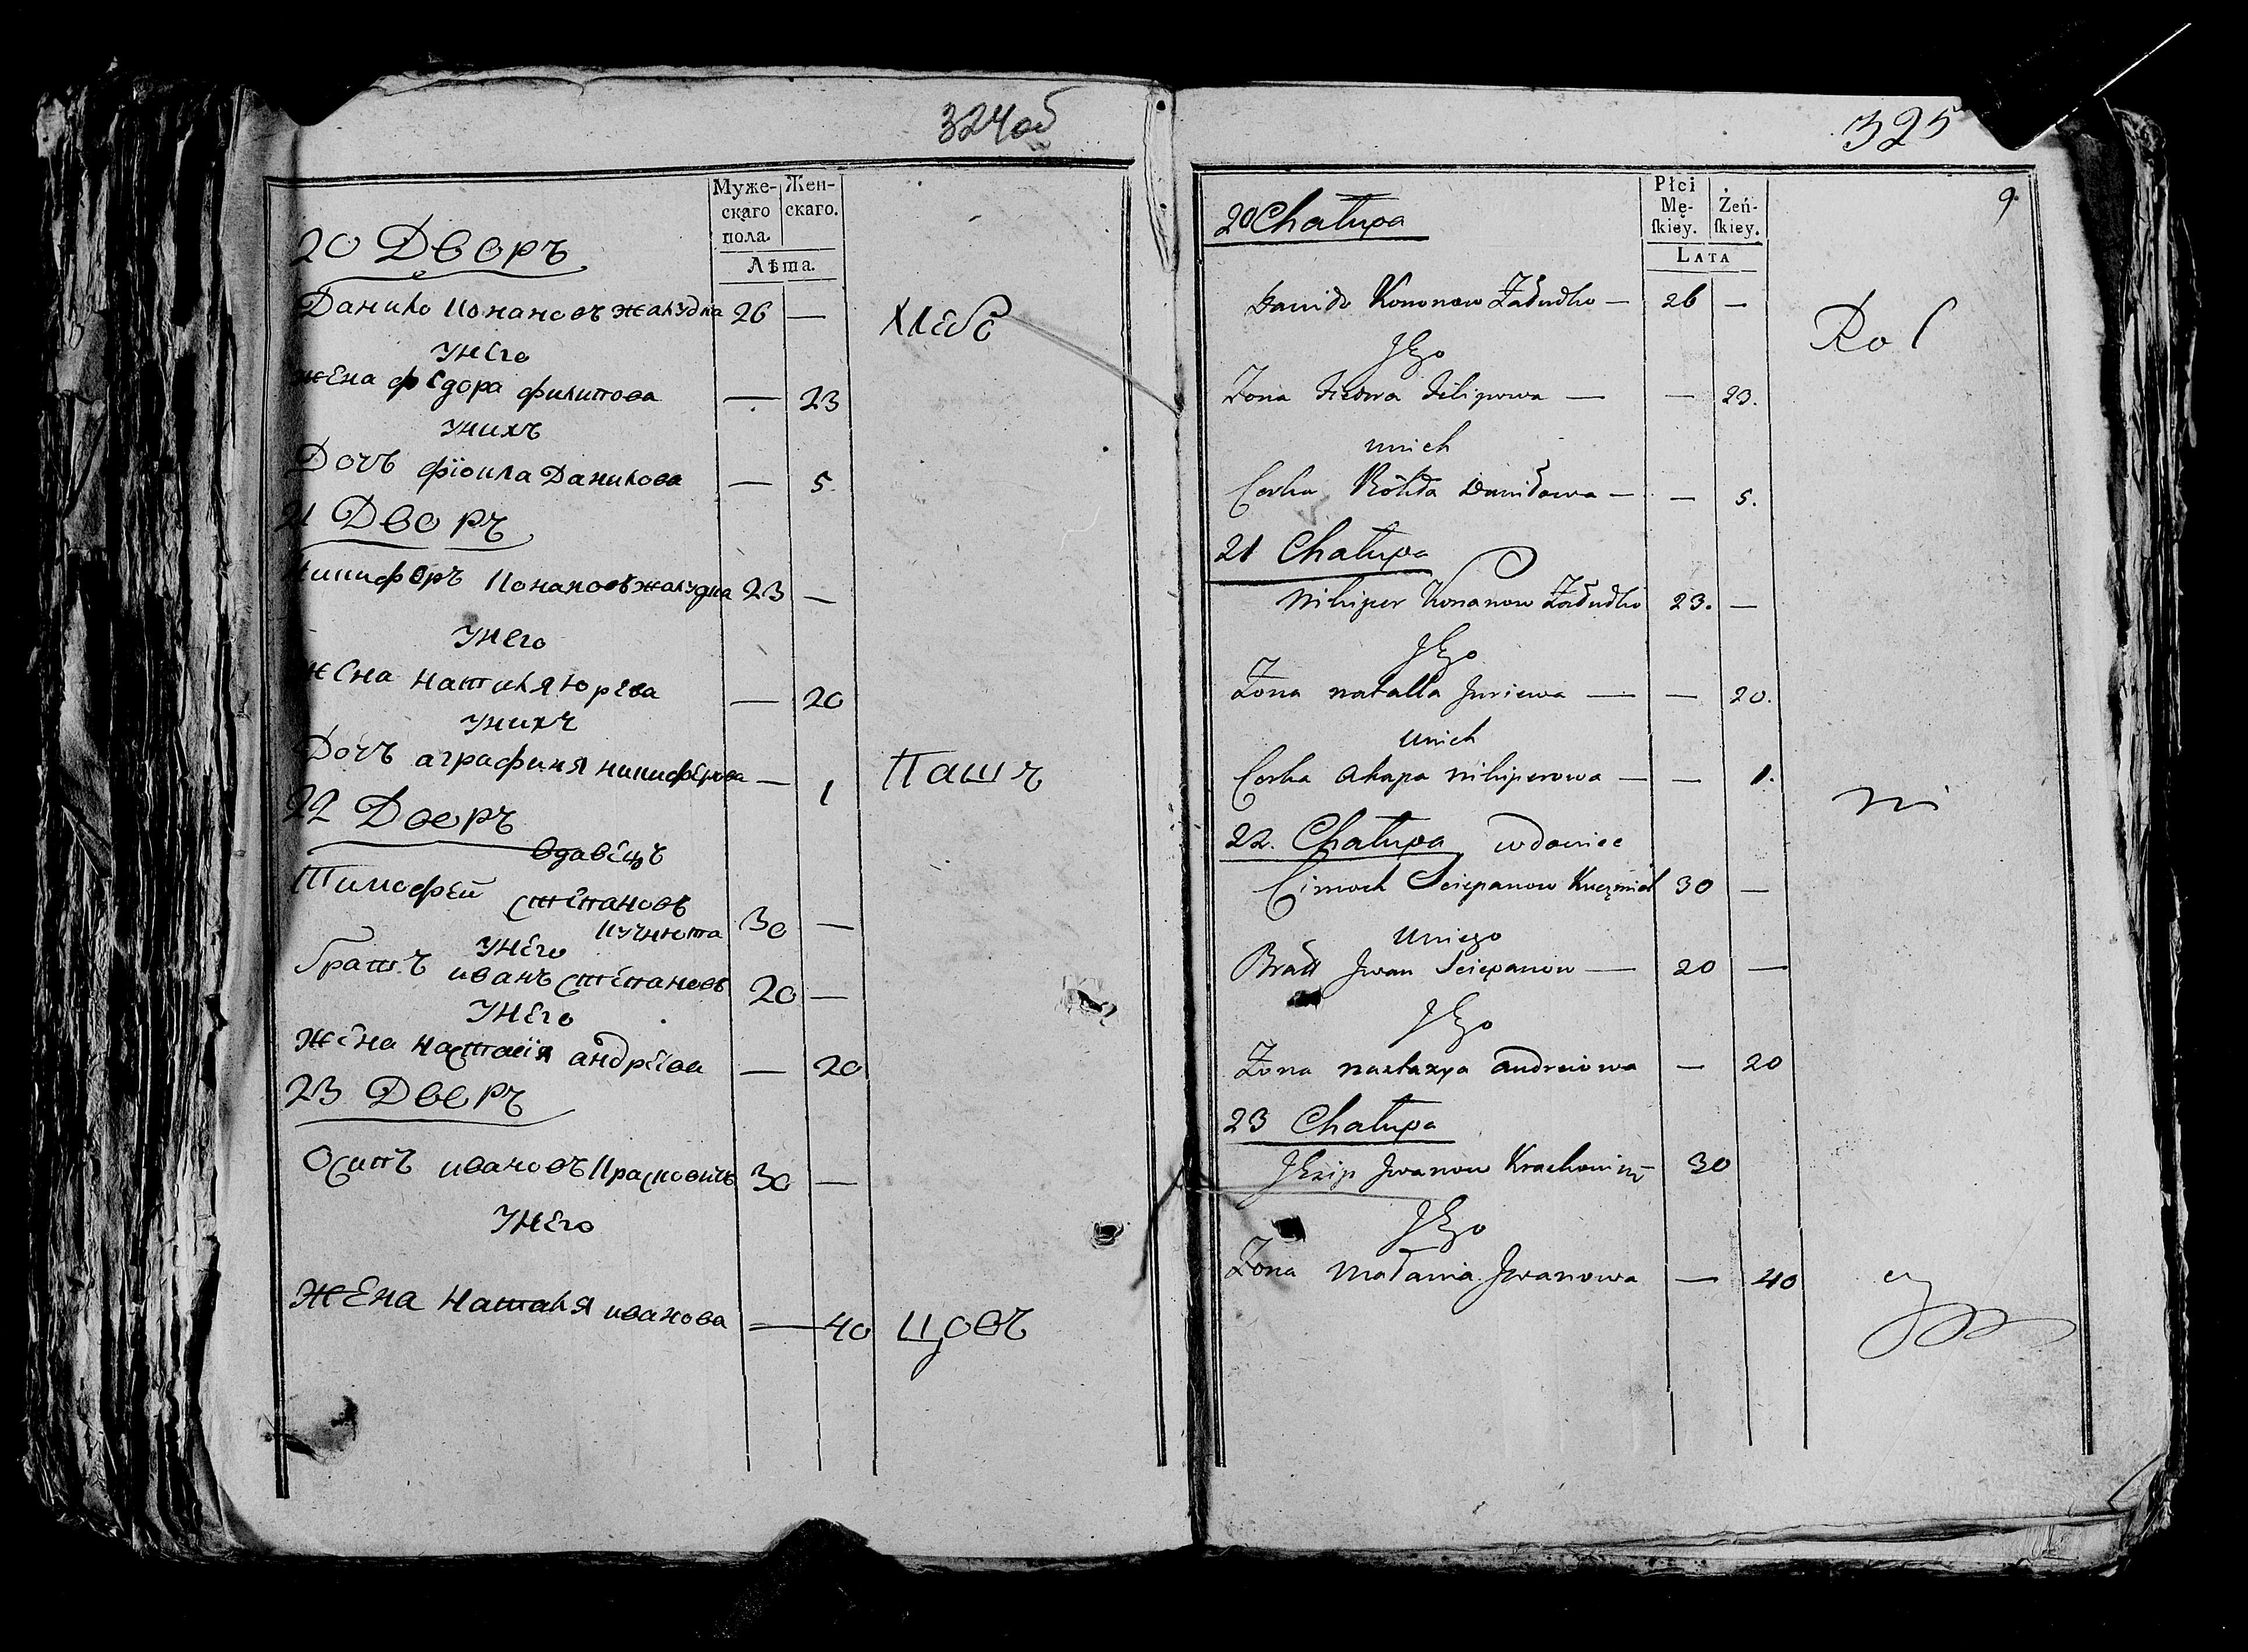 324об
Муже-
скаго
пола.
Жен-
скаго.
Лѣта.
20 Дворъ
Данило Конановъ жалудка 26 —
Хлебо
унего
жена федора филипова — 23
унихъ
Дочъ фіокла Данилова — 5.
21 Дворъ
Никифоръ Конановъ жалудка 23 —
унего
жена наталя юрева — 20
унихъ
Дочъ аграфиня никифорова — 1
Пашъ
22 Дворъ
вдавецъ
Тимофей степановъ
кучнюта 30 —
унего
братъ иванъ степановъ 20 —
унего
жена настасія андреева — 20
23 Дворъ
Осипъ ивановъ Красковичъ 30 —
унего
жена Наталя иванова — 40
цовъ
325
9.
Płci
Mę-
ſkiey.
Żeń-
ſkiey.
LATA
20 Chałupa
Daniło Kononow Żałudko — 26 —
Rol
Jego
Żona Fiedora Filipowa — — 23.
unich
Corka Daniłowa — — 5.
21 Chałupa
Nikiper Konanow Żałudko 23. —
Jego
Żona natalla Juriewa — — 20.
unich
Corka Ahapa nikiperowa — — 1.
ni
22. Chałupa wdowiec
Cimoch Sciepanow 30 —
uniego
Bratt Jwan Sciepanow — 20 —
Jego
Żona nastazya andreiowa — 20
23 Chałupa
Jwanow 30
Jego
Żona Małania Jwanowa — 40
cy